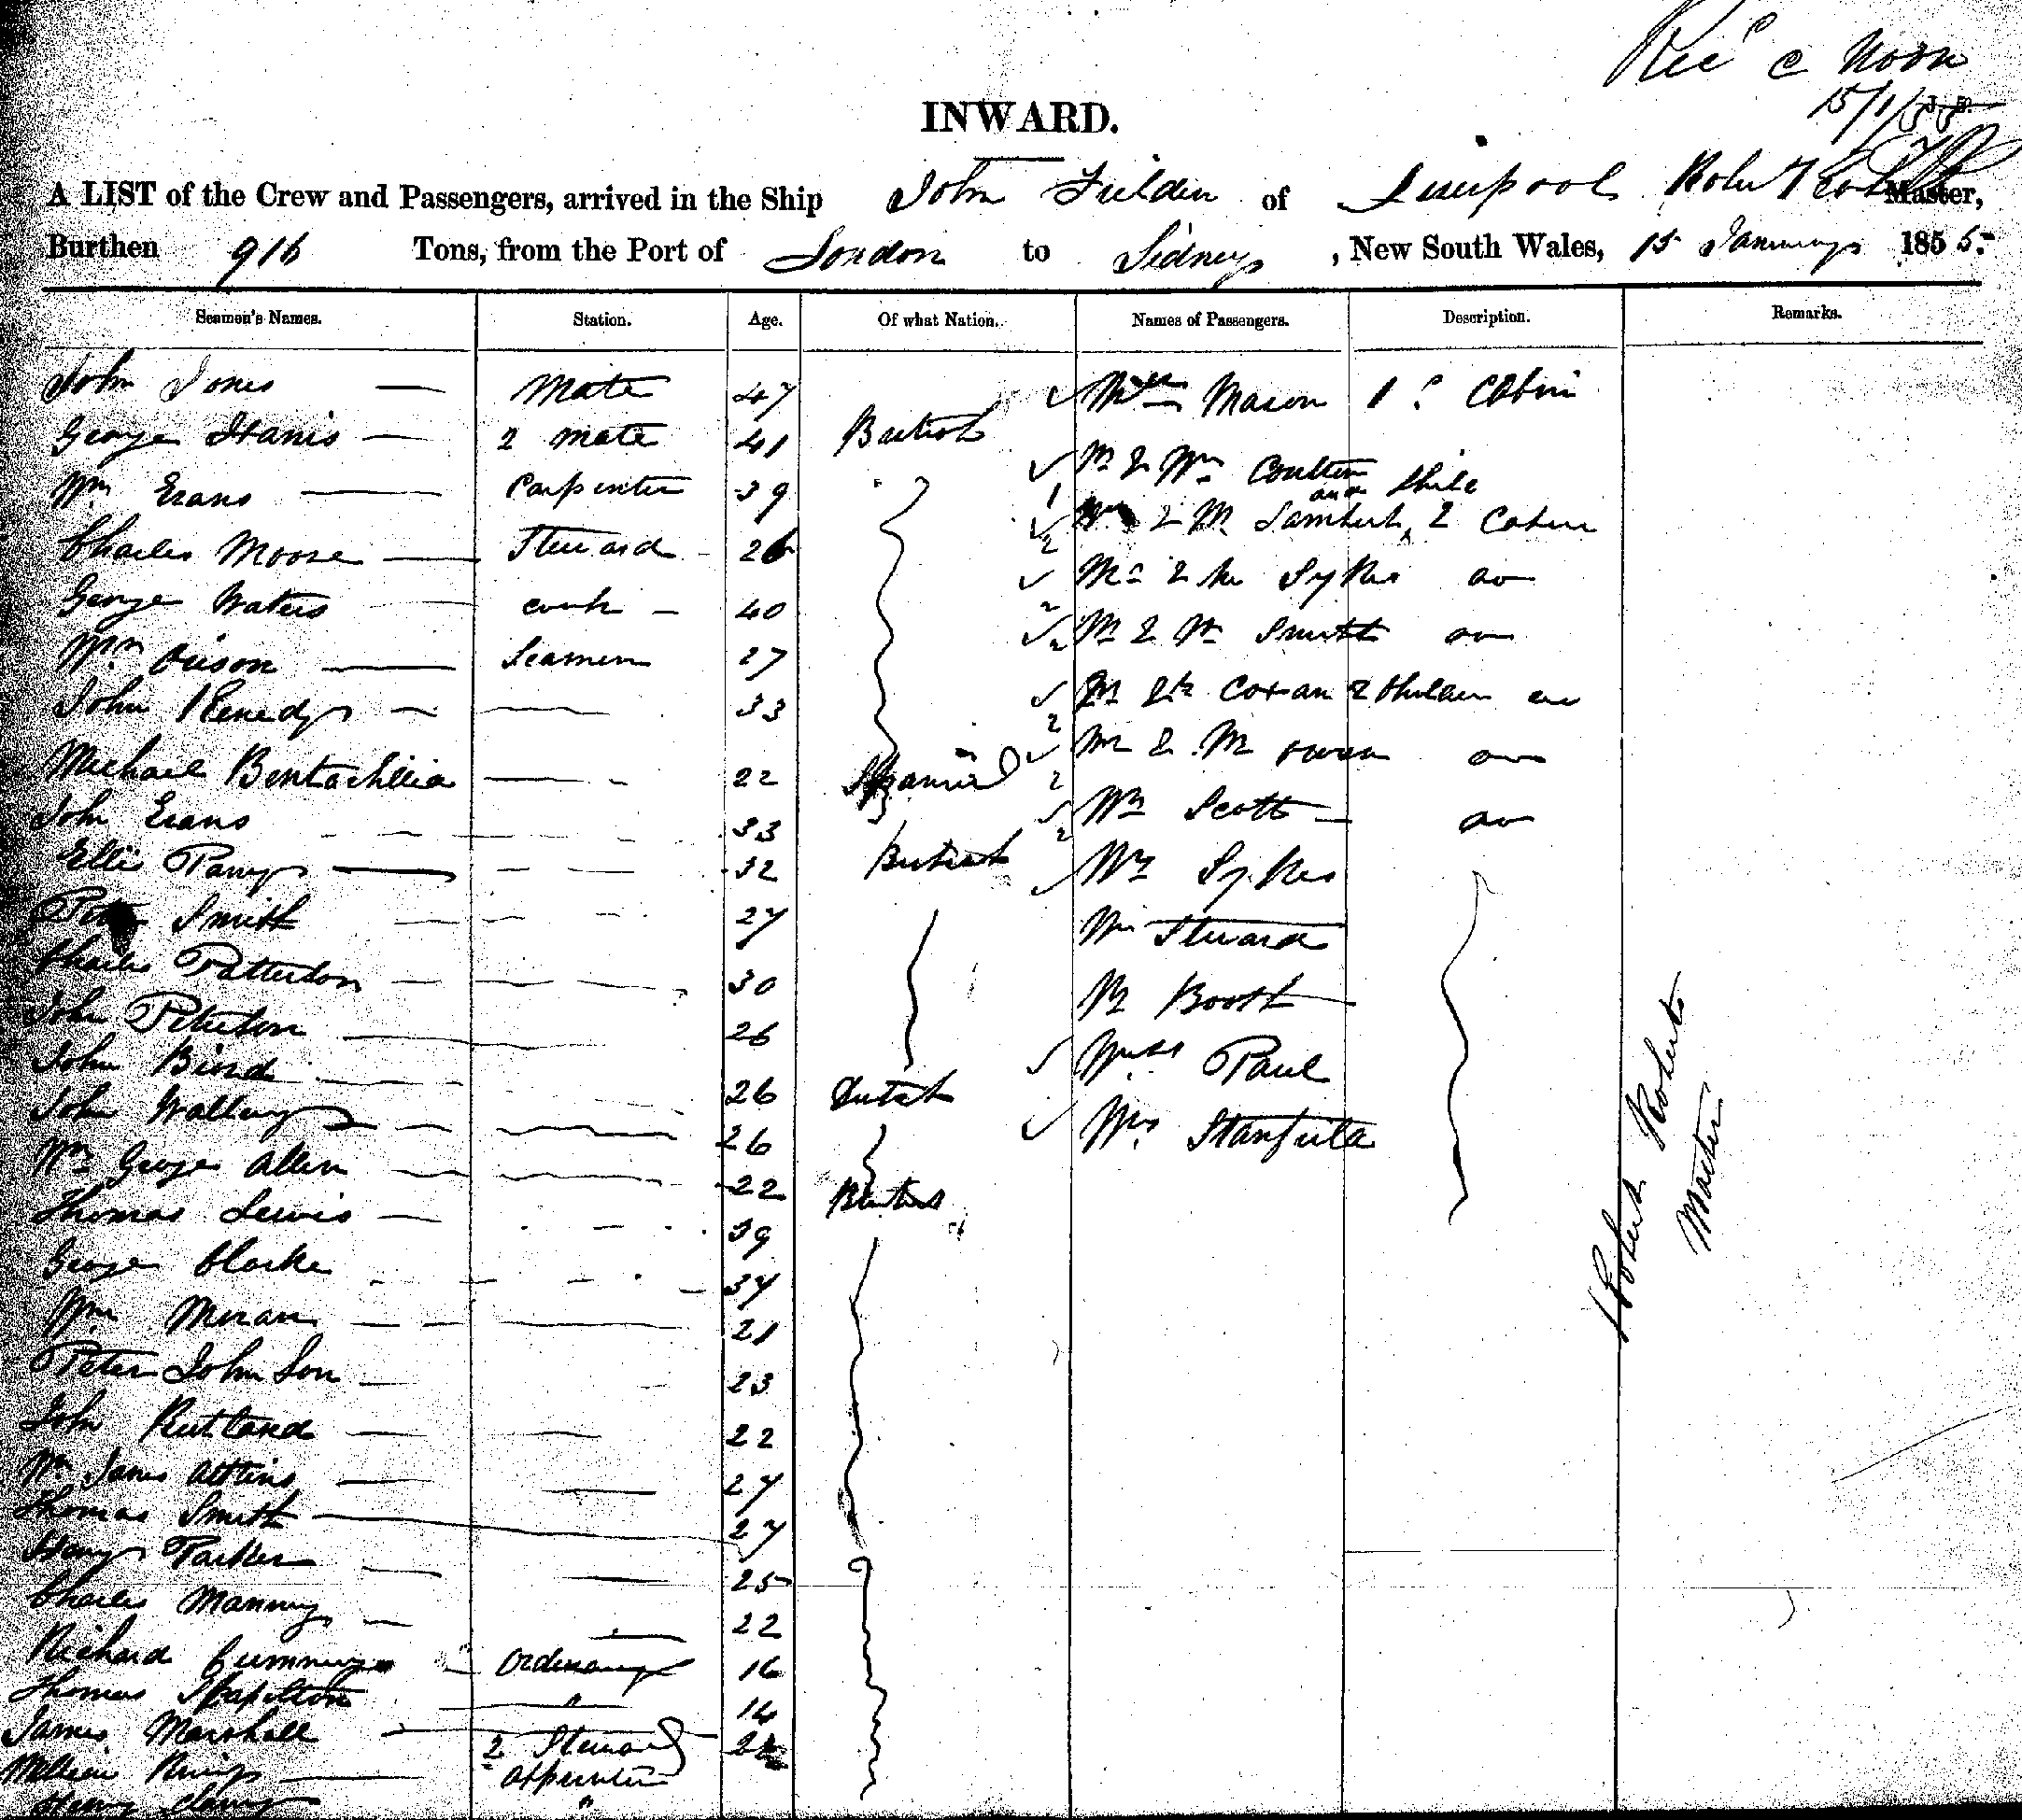 Rec^d @ Noon
15/1/55
INWARD.
A LIST of the Crew and Passengers, arrived in the Ship John Fielden of Liverpool Robert Master,
Burthen 916 Tons, from the Port of London to Sidney, New South Wales, 15 January 1855
Seamen's Names. Station. Age. Of what Nation. Names of Passengers. Description. Remarks.
John Jones — Mate 47 Mrs Mason 1^s Cabin
George Harris — 2 mate 41 British
Wm Evans — Carpenter 39 Mr & Mrs Coulter
Charles Moore — Steward 26 Mr & Mrs Lambert, 2 Cabin
and Child
George Waters — cook — 40 Mr & Mrs Sykes do
Wm — Seamen 27 Mr & Mrs Smith do
John Kenedy — 33 Mr & Mrs 2 Children do
Michael 22 Spaniard Mr & Mrs Owen do
John Evans 33 Mr Scott — do
Ellis Parry — 32 British Mr Sykes
Peter Smith 27 Mr Steward
Charles Patterson 30 Mr Booth
John Peterson 26 Miss Paul
John 26 Dutch Mrs Stanfield
John 26
Wm George Allen 22 British
Thomas Lewis — 39
George Clarke 34
Wm Moran 21
Peter Johnson — 23
John Rutland — 22
Wm James Atkins — 27
Thomas Smith — 27
Henry Parker 25
Charles Manning 22
Richard Cummings Ordinary 16
Thomas Stapelton " 14
James Marshall 2 Steward
William — Apprentice
Henry "
Robert Roberts
Master